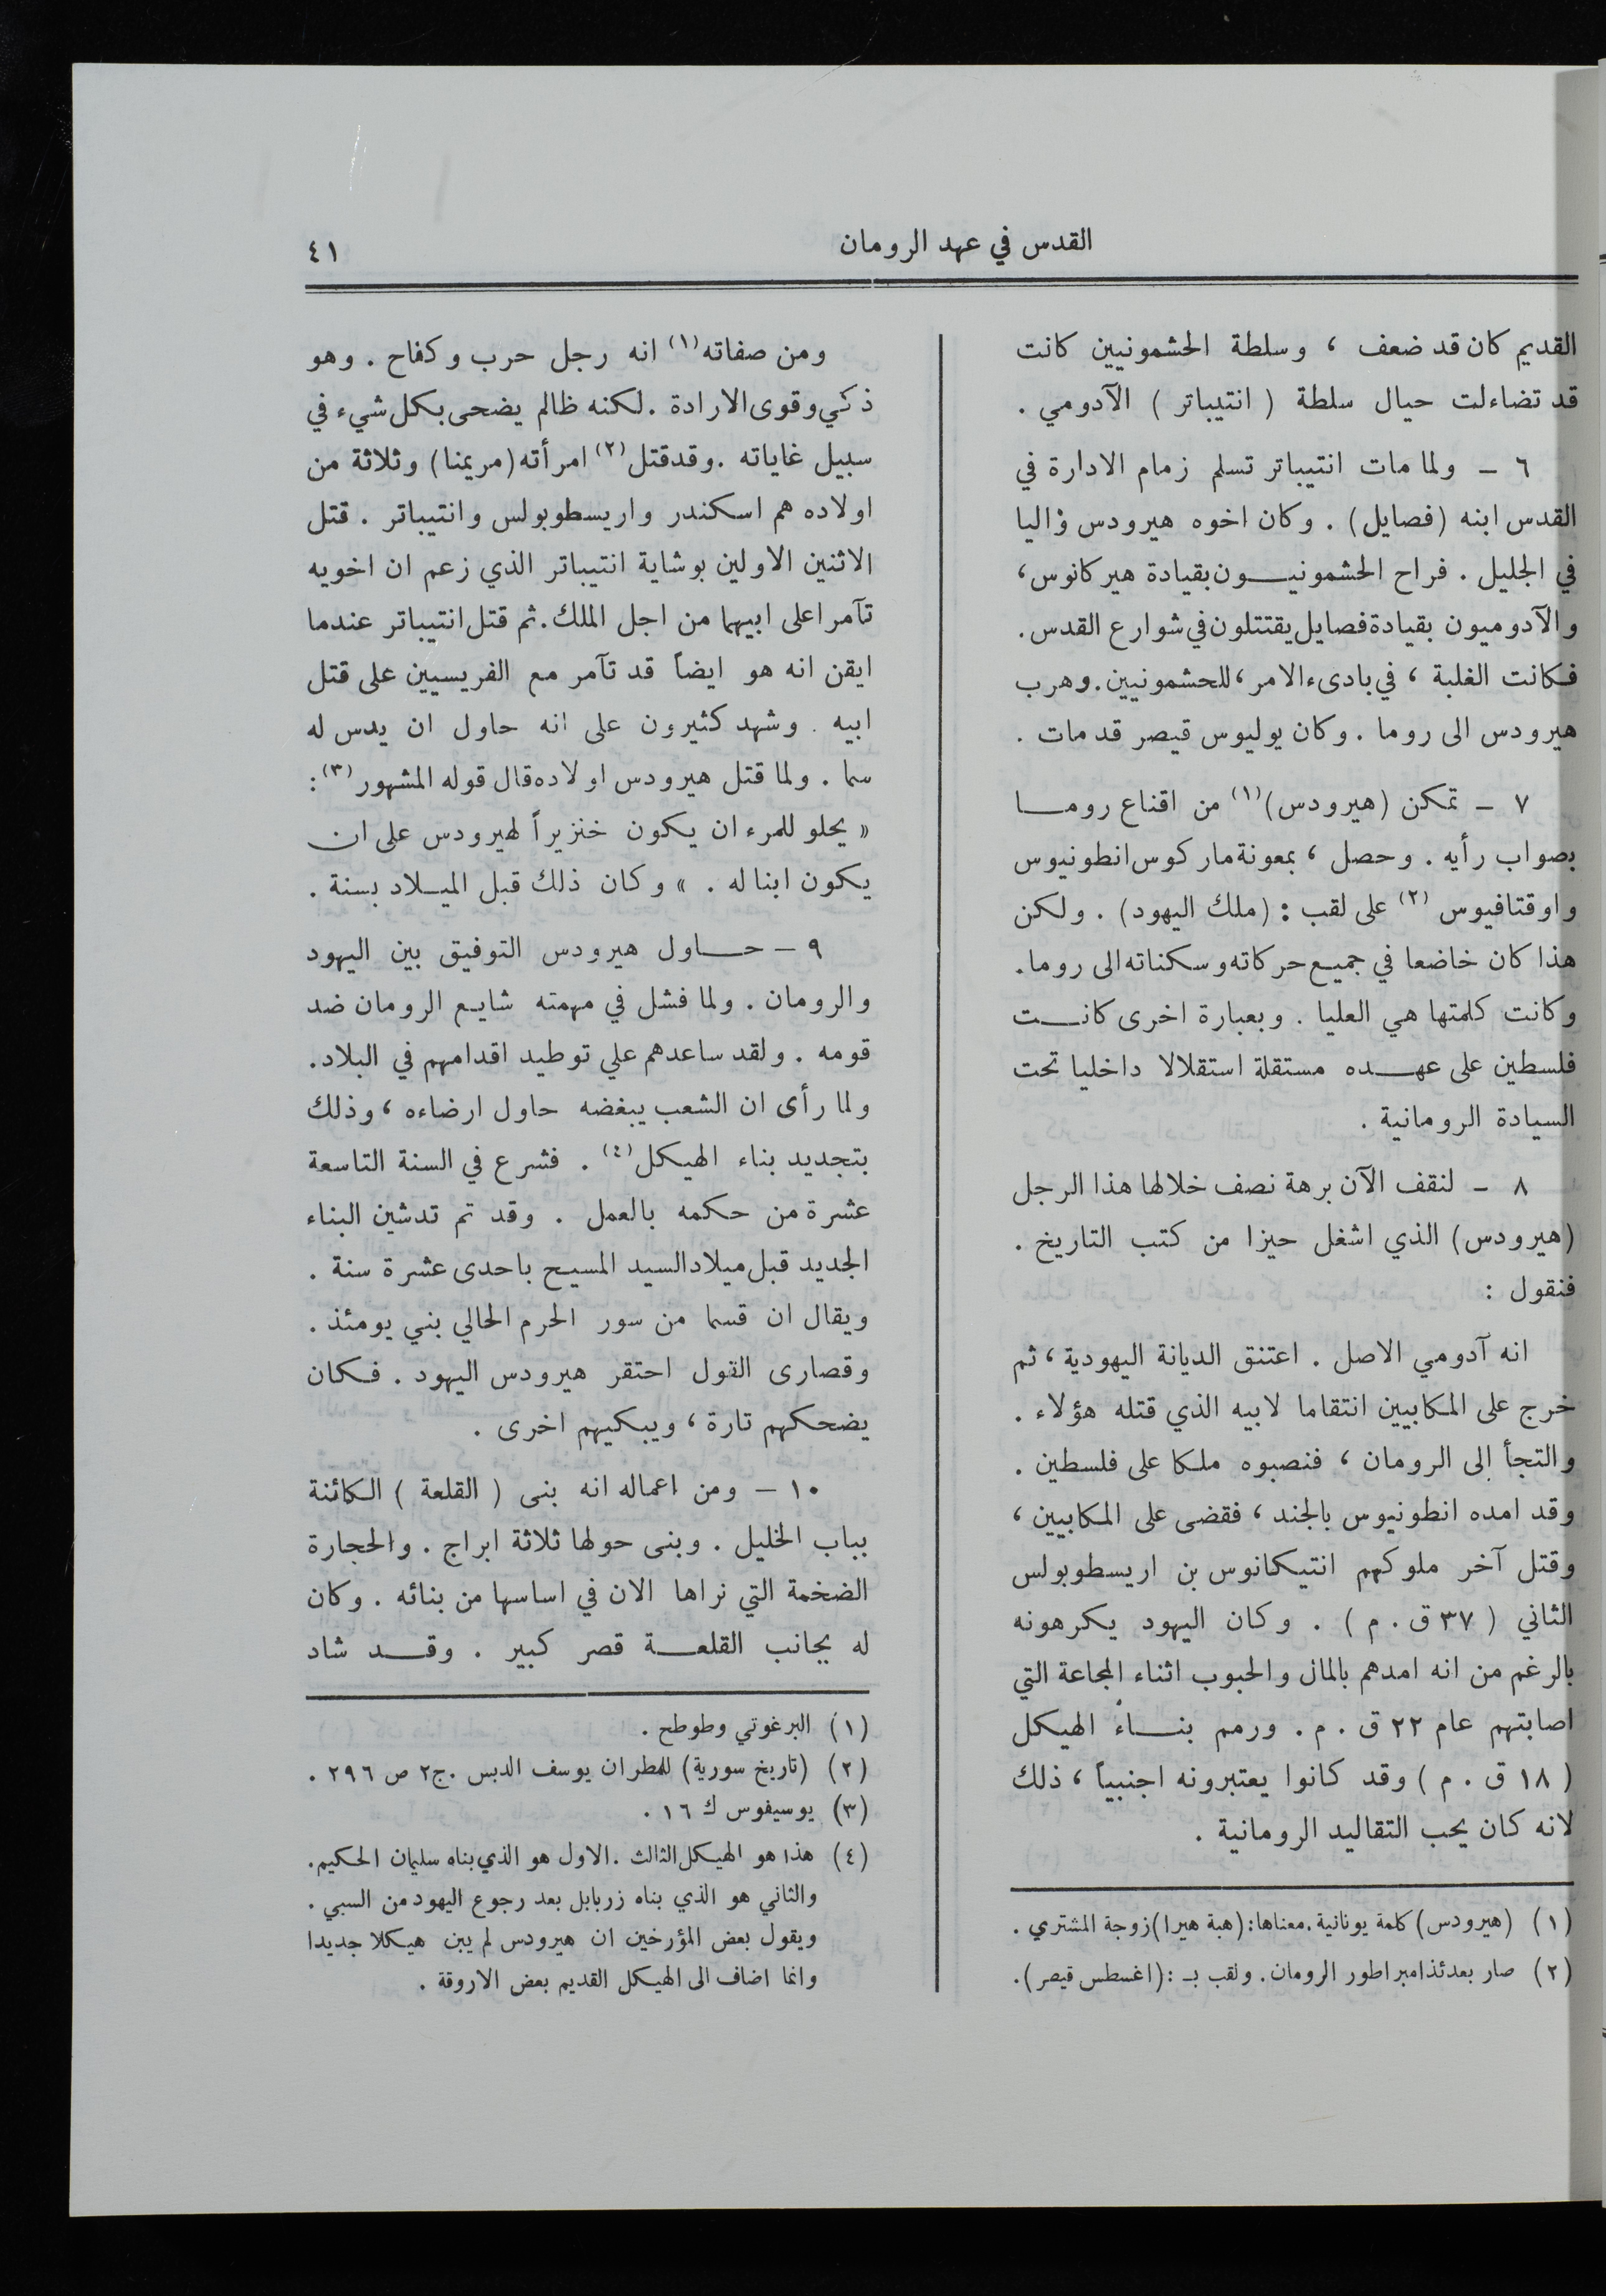 القدس في عهد الرومان
٤١
القديم كان قد ضعف ، وسلطة الحشمونيين كانت
قد تضاءلت حيال سلطة ( انتيباتر ) الآدومي .
٦ - ولما مات انتيباتر تسلم زمام الادارة في
القدس ابنه (فصايل) . وكان اخوه هيرودس واليا
في الجليل . فراح الحشمونيون بقيادة هيركانوس،
والآدوميون بقيادة فصايل يقتتلون في شوارع القدس.
فكانت الغلبة ، في بادىء الامر، للحشمونيين. وهرب
هيرودس الى روما . وكان يوليوس قيصر قد مات .
٧ - تمكن (هيرودس)(١) من اقناع روما
بصواب رأيه . وحصل ، بمعونة ماركوس انطونيوس
واوقتافيوس (٢) على لقب : (ملك اليهود) . ولكن
هذا كان خاضعا في جميع حركاته وسكناته الى روما.
وكانت كلمتها هي العليا . وبعبارة اخرى كانت
فلسطين على عهده مستقلة استقلالا داخليا تحت
السيادة الرومانية .
٨ - لنقف الآن برهة نصف خلالها هذا الرجل
(هيرودس) الذي اشغل حيزا من كتب التاريخ .
فنقول :
انه آدومي الاصل . اعتنق الديانة اليهودية، ثم
خرج على المكابيين انتقاما لابيه الذي قتله هؤلاء .
والتجأ إلى الرومان ، فنصبوه ملكا على فلسطين .
وقد امده انطونيوس بالجند ، فقضى على المكابيين ،
وقتل آخر ملوكهم انتيكانوس بن اريسطوبولس
الثاني ( ٣٧ ق . م ) . وكان اليهود يكرهونه
بالرغم من انه امدهم بالمال والحبوب اثناء المجاعة التي
اصابتهم عام ٢٢ ق . م . ورمم بناء الهيكل
( ١٨ ق . م ) وقد كانوا يعتبرونه اجنبياً ، ذلك
لانه كان يحب التقاليد الرومانية .
(١) (هيرودس) كلمة يونانية. معناها: (هبة هيرا) زوجة المشتري .
(٢) صار بعدئذ امبراطور الرومان. ولقب بـ : (اغسطس قيصر).
ومن صفاته(١) انه رجل حرب وكفاح . وهو
ذكي وقوى الارادة . لكنه ظالم يضحى بكل شيء في
سبيل غاياته . وقد قتل(٢) امرأته (مريمنا) وثلاثة من
اولاده هم اسكندر واريسطوبولس وانتيباتر . قتل
الاثنين الاولين بوشاية انتيباتر الذي زعم ان اخويه
تآمرا على ابيهما من اجل الملك. ثم قتل انتيباتر عندما
ايقن انه هو ايضاً قد تآمر مع الفريسيين على قتل
ابيه . وشهد كثيرون على انه حاول ان يدس له
سما . ولما قتل هيرودس اولاده قال قوله المشهور(٣):
« يحلو للمرء ان يكون خنزيراً لهيرودس على ان
يكون ابنا له . » وكان ذلك قبل الميلاد بسنة .
٩ - حاول هيرودس التوفيق بين اليهود
والرومان . ولما فشل في مهمته شايع الرومان ضد
قومه . ولقد ساعدهم علي توطيد اقدامهم في البلاد.
ولما رأى ان الشعب يبغضه حاول ارضاءه ، وذلك
بتجديد بناء الهيكل(٤) . فشرع في السنة التاسعة
عشرة من حكمه بالعمل . وقد تم تدشين البناء
الجديد قبل ميلاد السيد المسيح باحدى عشرة سنة .
ويقال ان قسما من سور الحرم الحالي بني يومئذ .
وقصارى القول احتقر هيرودس اليهود . فكان
يضحكهم تارة ، ويبكيهم اخرى .
١٠ - ومن اعماله انه بنى ( القلعة ) الكائنة
بباب الخليل . وبنى حولها ثلاثة ابراج . والحجارة
الضخمة التي نراها الان في اساسها من بنائه . وكان
له بجانب القلعة قصر كبير . وقد شاد
(١) البرغوتي وطوطح .
(٢) (تاريخ سورية) للمطران يوسف الدبس . ج٢ ص ٢٩٦ .
(٣) يوسيفوس ك ١٦ .
(٤) هذا هو الهيكل الثالث . الاول هو الذي بناه سليمان الحكيم.
والثاني هو الذي بناه زربابل بعد رجوع اليهود من السبي .
ويقول بعض المؤرخين ان هيرودس لم يبن هيكلا جديدا
وانما اضاف الى الهيكل القديم بعض الاروقة .